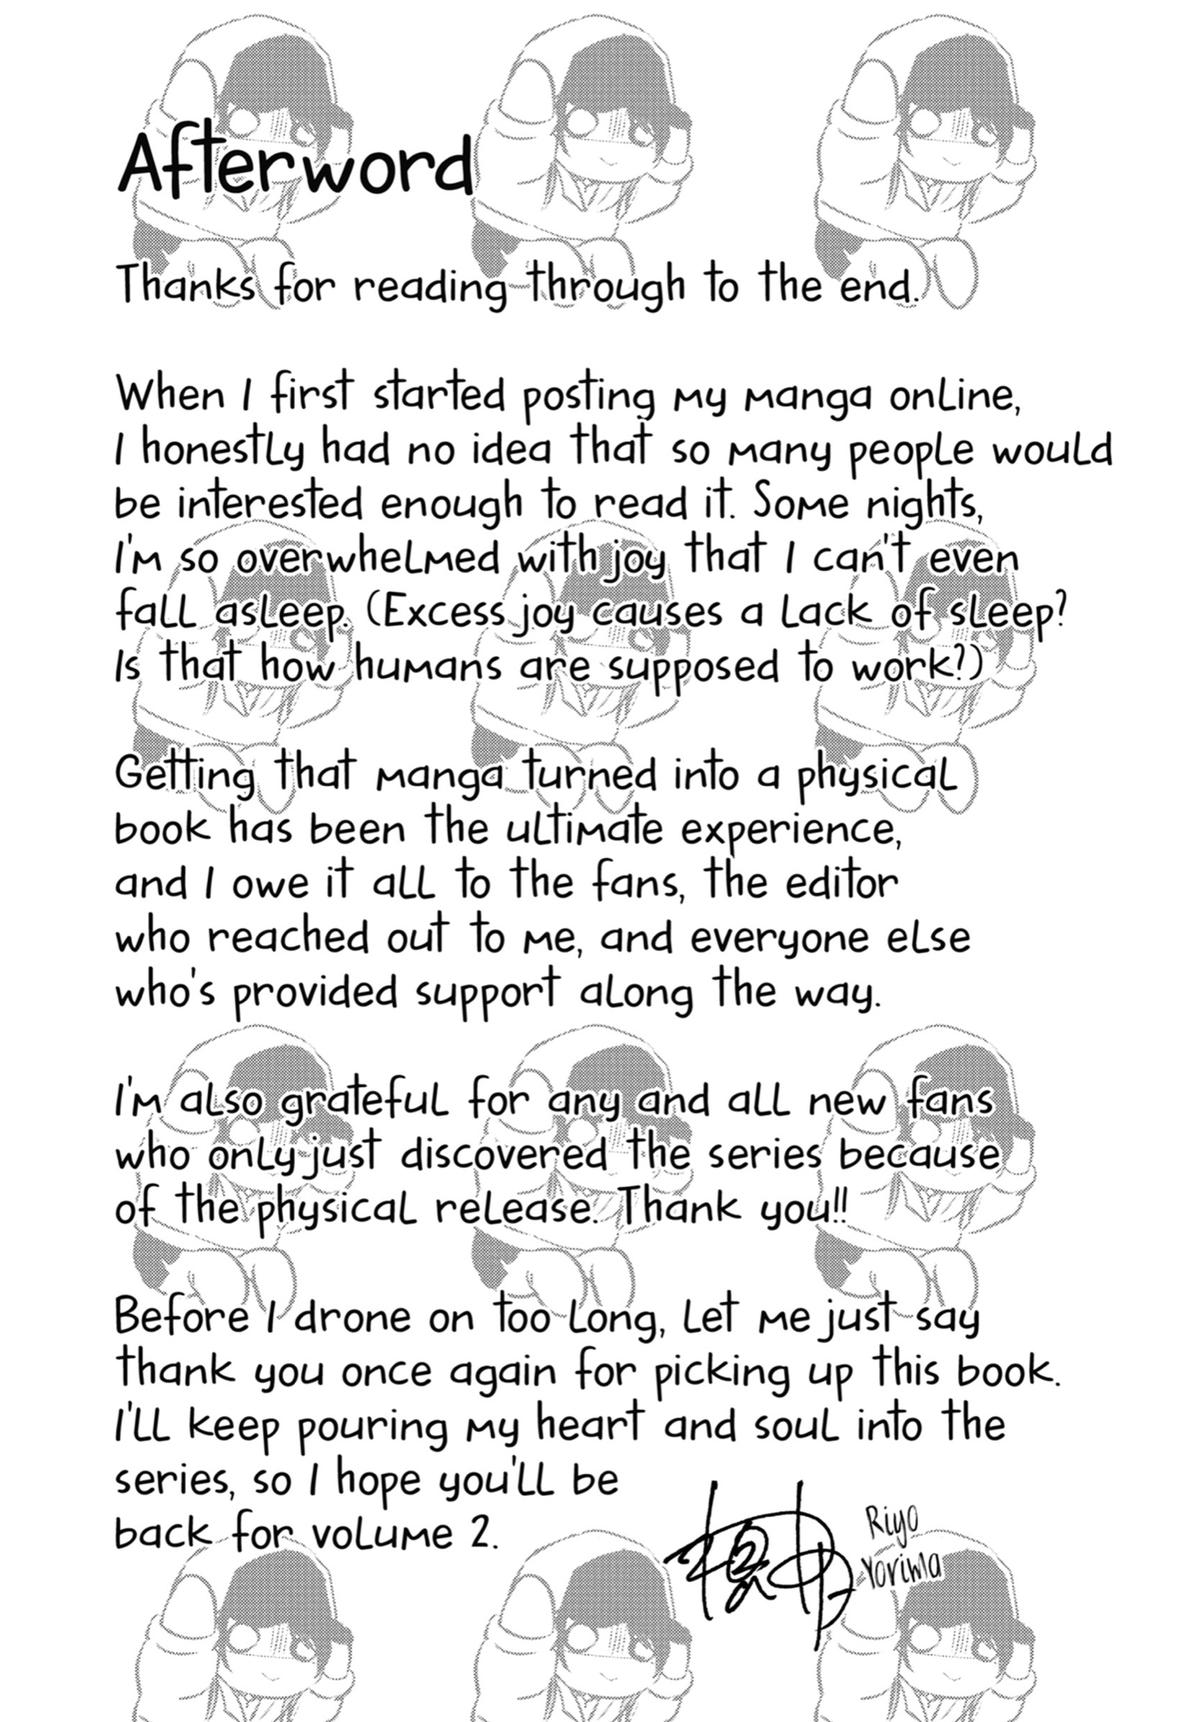 Afterword
Thanks for reading through to the end.
When I first started posting my manga online,
I honestly had no idea that so many people would
be interested enough to read it. Some nights,
I'm so overwhelmed with joy that I can't even
fall asleep. (Excess joy causes a lack of sleep?
Is that how humans are supposed to work?)
Getting that manga turned into a physical
book has been the ultimate experience,
and I owe it all to the fans, the editor
who reached out to me, and everyone else
who's provided support along the way.
I'm also grateful for any and all new fans
who only just discovered the series because
of the physical release. Thank you!!
Before I drone on too long, let me just say
thank you once again for picking up this book.
I'll keep pouring my heart and soul into the
series, so I hope you'll be
back for volume 2.
Riyo
Yorima